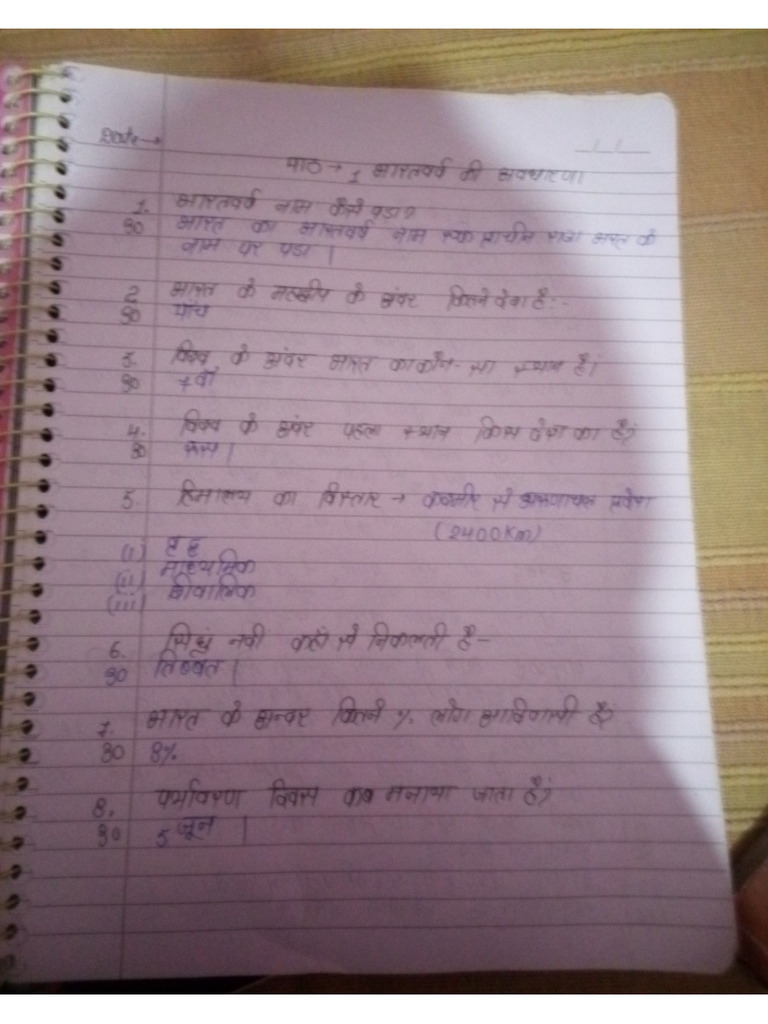 Date →
पाठ → 1 भारतवर्ष की अवधारणा
1. भारतवर्ष नाम कैसे पडा?
उ0 भारत का भारतवर्ष नाम एक प्राचीन राजा भरत के
नाम पर पडा |
2. भारत के के अंदर कितने देश है:-
उ0 पांच
3. विश्व के अंदर भारत का कौन-सा स्थान है।
उ0 7वाँ
4. विश्व के अंदर पहला स्थान किस देश का है?
उ0 रूस |
5. हिमालय का विस्तार → कश्मीर से अरुणाचल प्रदेश
(2400Km)
(i)
(ii) माध्यमिक
(iii) शिवालिक
6. सिंधु नदी कहाँ से निकलती है –
उ0 तिब्बत |
7. भारत के अन्दर कितने % लोग आदिवासी है?
उ0 8%
8. पर्यावरण दिवस कब मनाया जाता है?
उ0 5 जून |